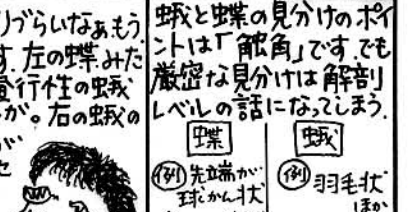 りづらいなぁもう
す。左の蝶みた
行性の蛾
が。右の蛾の
が
せ
蛾と蝶の見分けのポイ
ントは「触角」です。でも
厳密な見分けは解剖
レベルの話になってしまう。
蝶
例 先端が
球かん状
蛾
例 羽毛状
ほか